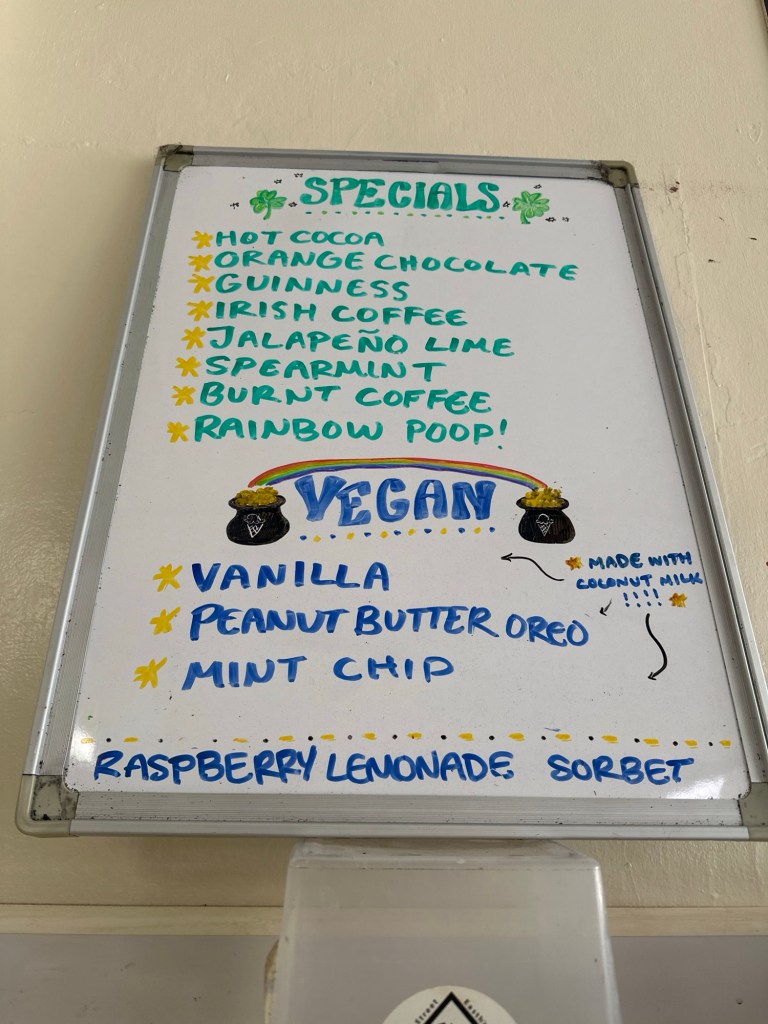 SPECIALS
HOT COCOA
ORANGE CHOCOLATE
GUINNESS
IRISH COFFEE
JALAPEÑO LIME
SPEARMINT
BURNT COFFEE
RAINBOW POOP!
VEGAN
MADE WITH
COCONUT MILK
!!!!
VANILLA
PEANUT BUTTER OREO
MINT CHIP
RASPBERRY LEMONADE SORBET
Street